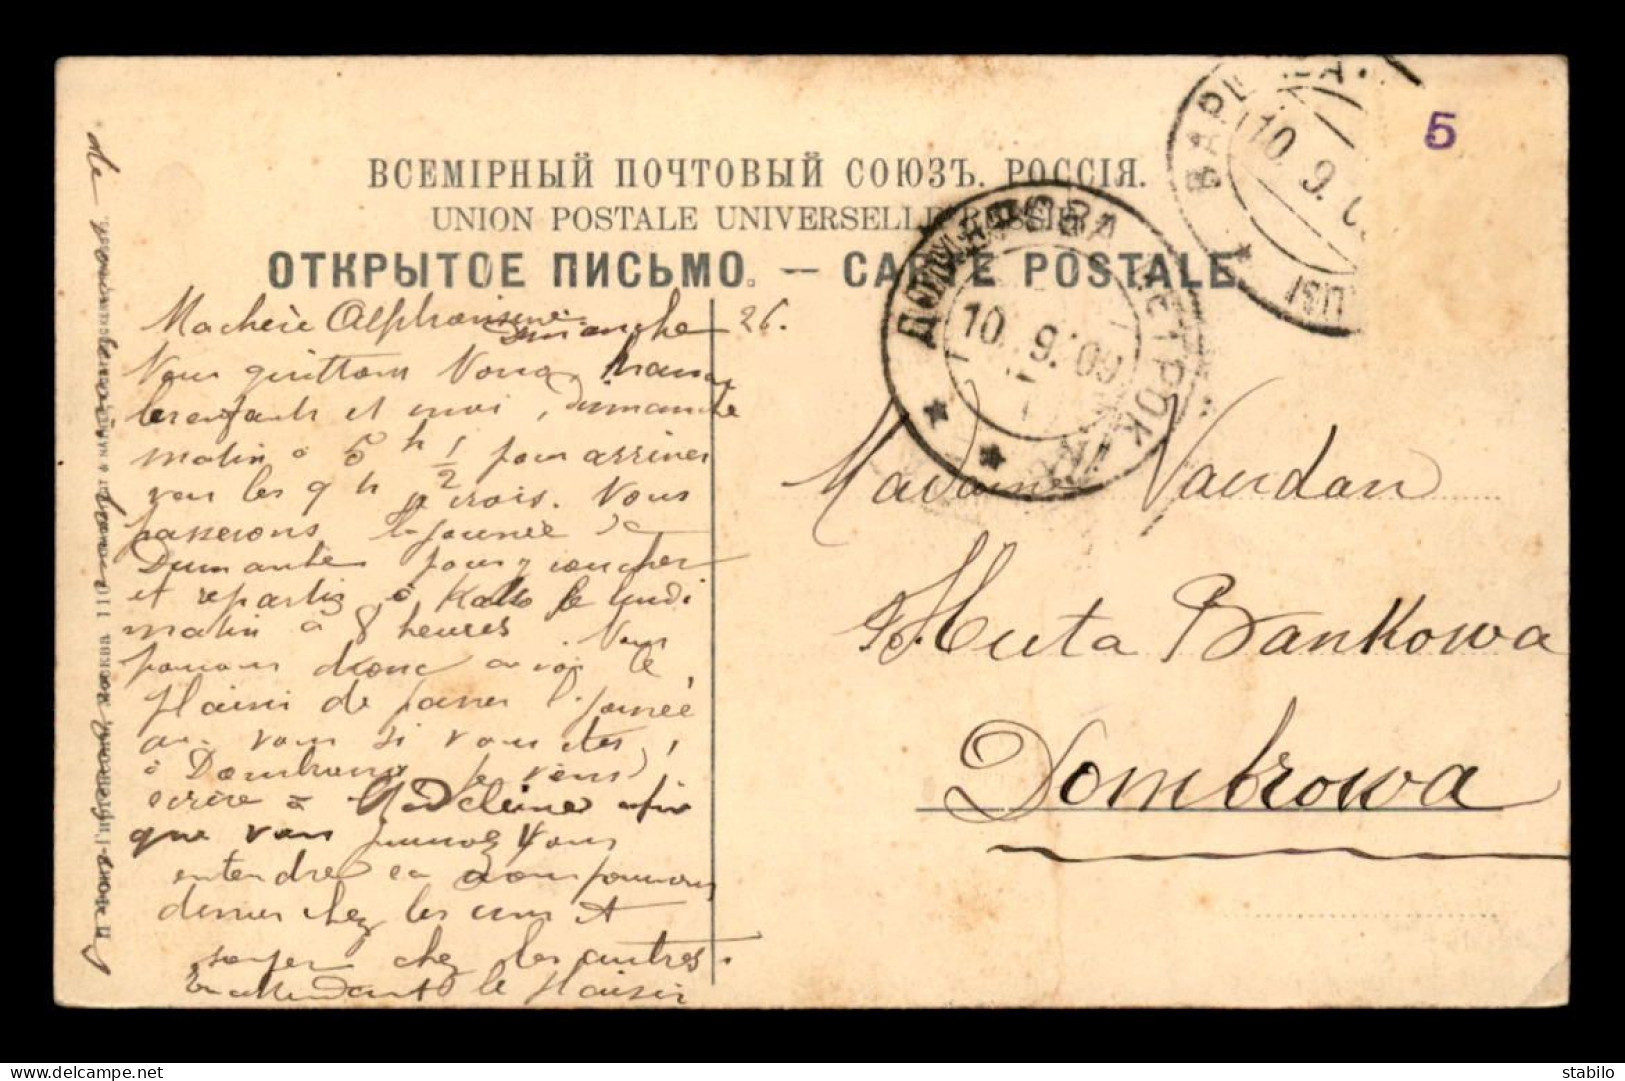 ВСЕМІРНЫЙ ПОЧТОВЫЙ СОЮЗЪ. РОССІЯ.
UNION POSTALE UNIVERSELLE RUSSIE
ОТКРЫТОЕ ПИСЬМО. — CARTE POSTALE.
5
10.9.0
10.9.09
Ma chère Alphonsine Dimanche 26.
Nous quittons
les enfants et moi, dimanche
matin à 5 h 1/2 pour arriver
vers les 9 h je crois. Nous
passerons la journée
pour y coucher
et repartir à le lundi
matin à 8 heures. Vous
pouvez donc avoir le
plaisir de passer la journée
avec vous si vous êtes
à Dombrowa je viens
écrire à Madeleine afin
que vous puissiez vous
entendre et nous pouvons
diner chez les uns et
souper chez les autres.
En attendant le plaisir
de
Madame Vaudan
Huta Bankowa
Dombrowa
МОСКВА
delcampe.net
stabilo